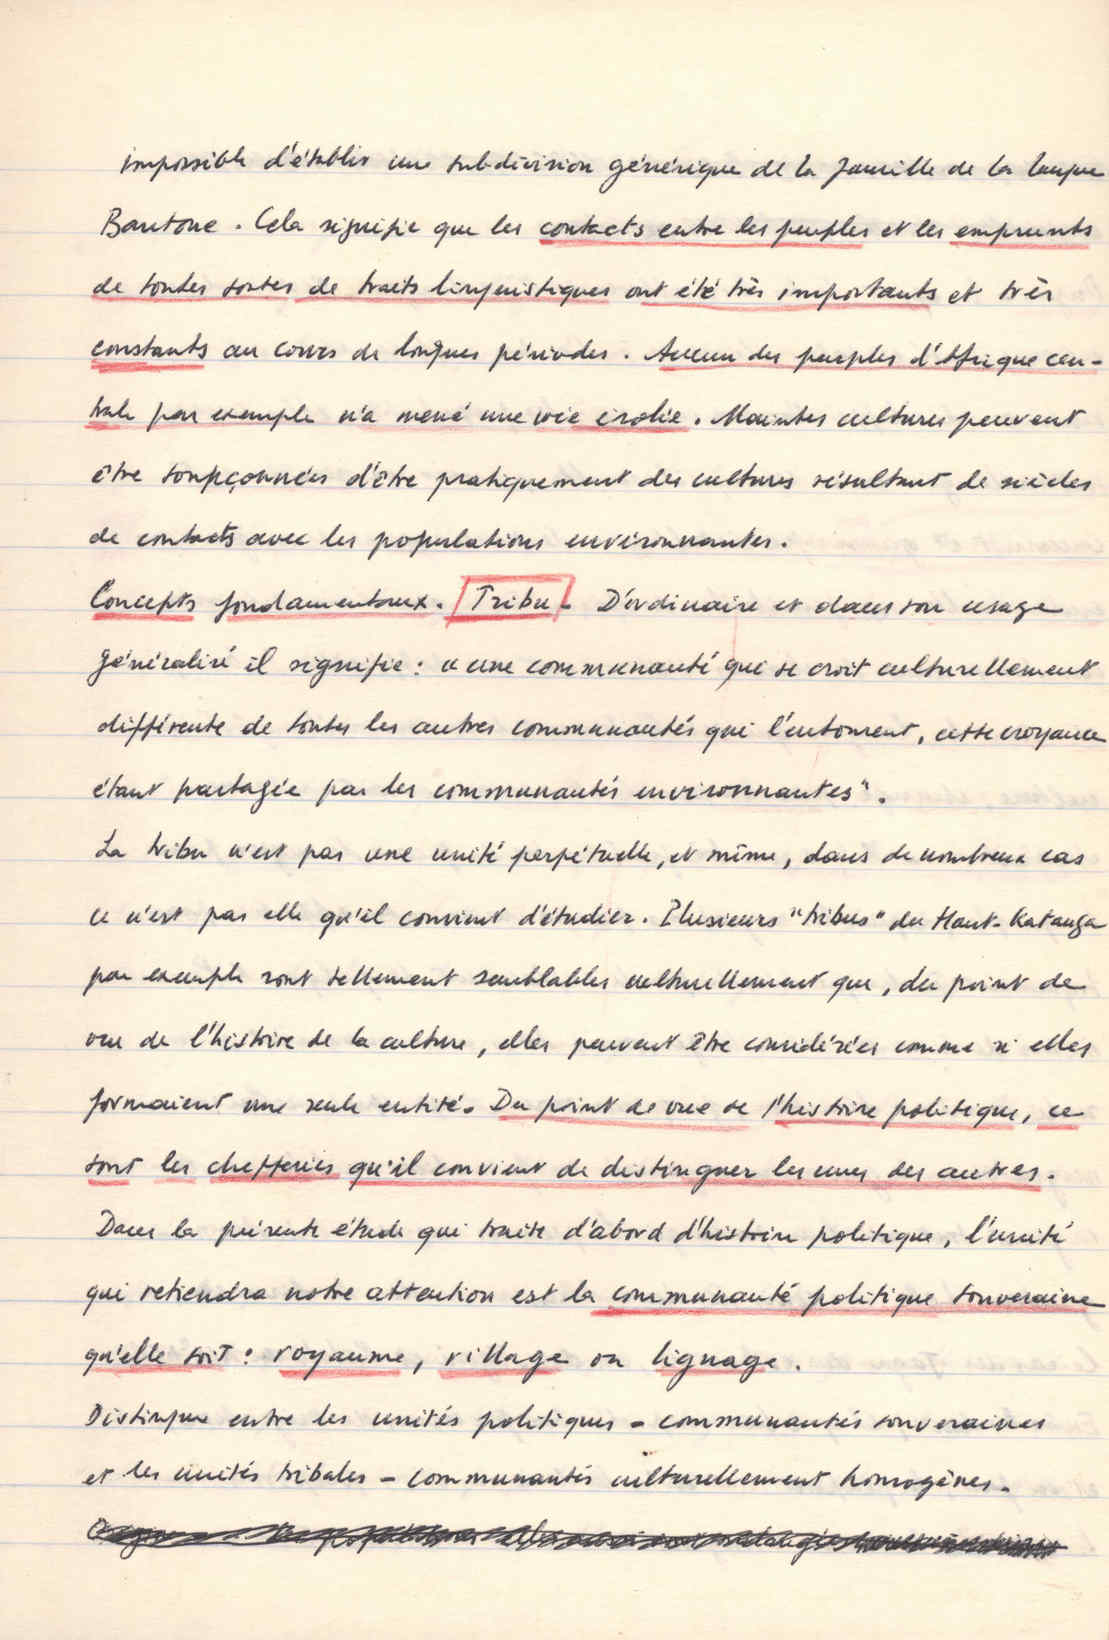 impossible d'établir une subdivision générique de la famille de la langue
Bantoue. Cela signifie que les contacts entre les peuples et les emprunts
de toutes sortes de traits linguistiques ont été très importants et très
constants au cours de longues périodes. Aucun des peuples d'Afrique cen-
trale par exemple n'a mené une vie isolée. Maintes cultures peuvent
être soupçonnées d'être pratiquement des cultures résultant de siècles
de contacts avec les populations environnantes.
Concepts fondamentaux. Tribu - D'ordinaire et dans son usage
généralisé il signifie : "une communauté qui se croit culturellement
différente de toutes les autres communautés qui l'entourent, cette croyance
étant partagée par les communautés environnantes".
La tribu n'est pas une unité perpétuelle, et même, dans de nombreux cas
ce n'est pas elle qu'il convient d'étudier. Plusieurs "tribus" du Haut-Katanga
par exemple sont tellement semblables culturellement que, du point de
vue de l'histoire de la culture, elles peuvent être considérées comme si elles
formaient une seule entité. Du point de vue de l'histoire politique, ce
sont les chefferies qu'il convient de distinguer les unes des autres.
Dans la présente étude qui traite d'abord d'histoire politique, l'unité
qui retiendra notre attention est la communauté politique souveraine
qu'elle soit : royaume, village ou lignage.
Distingue entre les unités politiques - communautés souveraines
et les unités tribales - communautés culturellement homogènes.